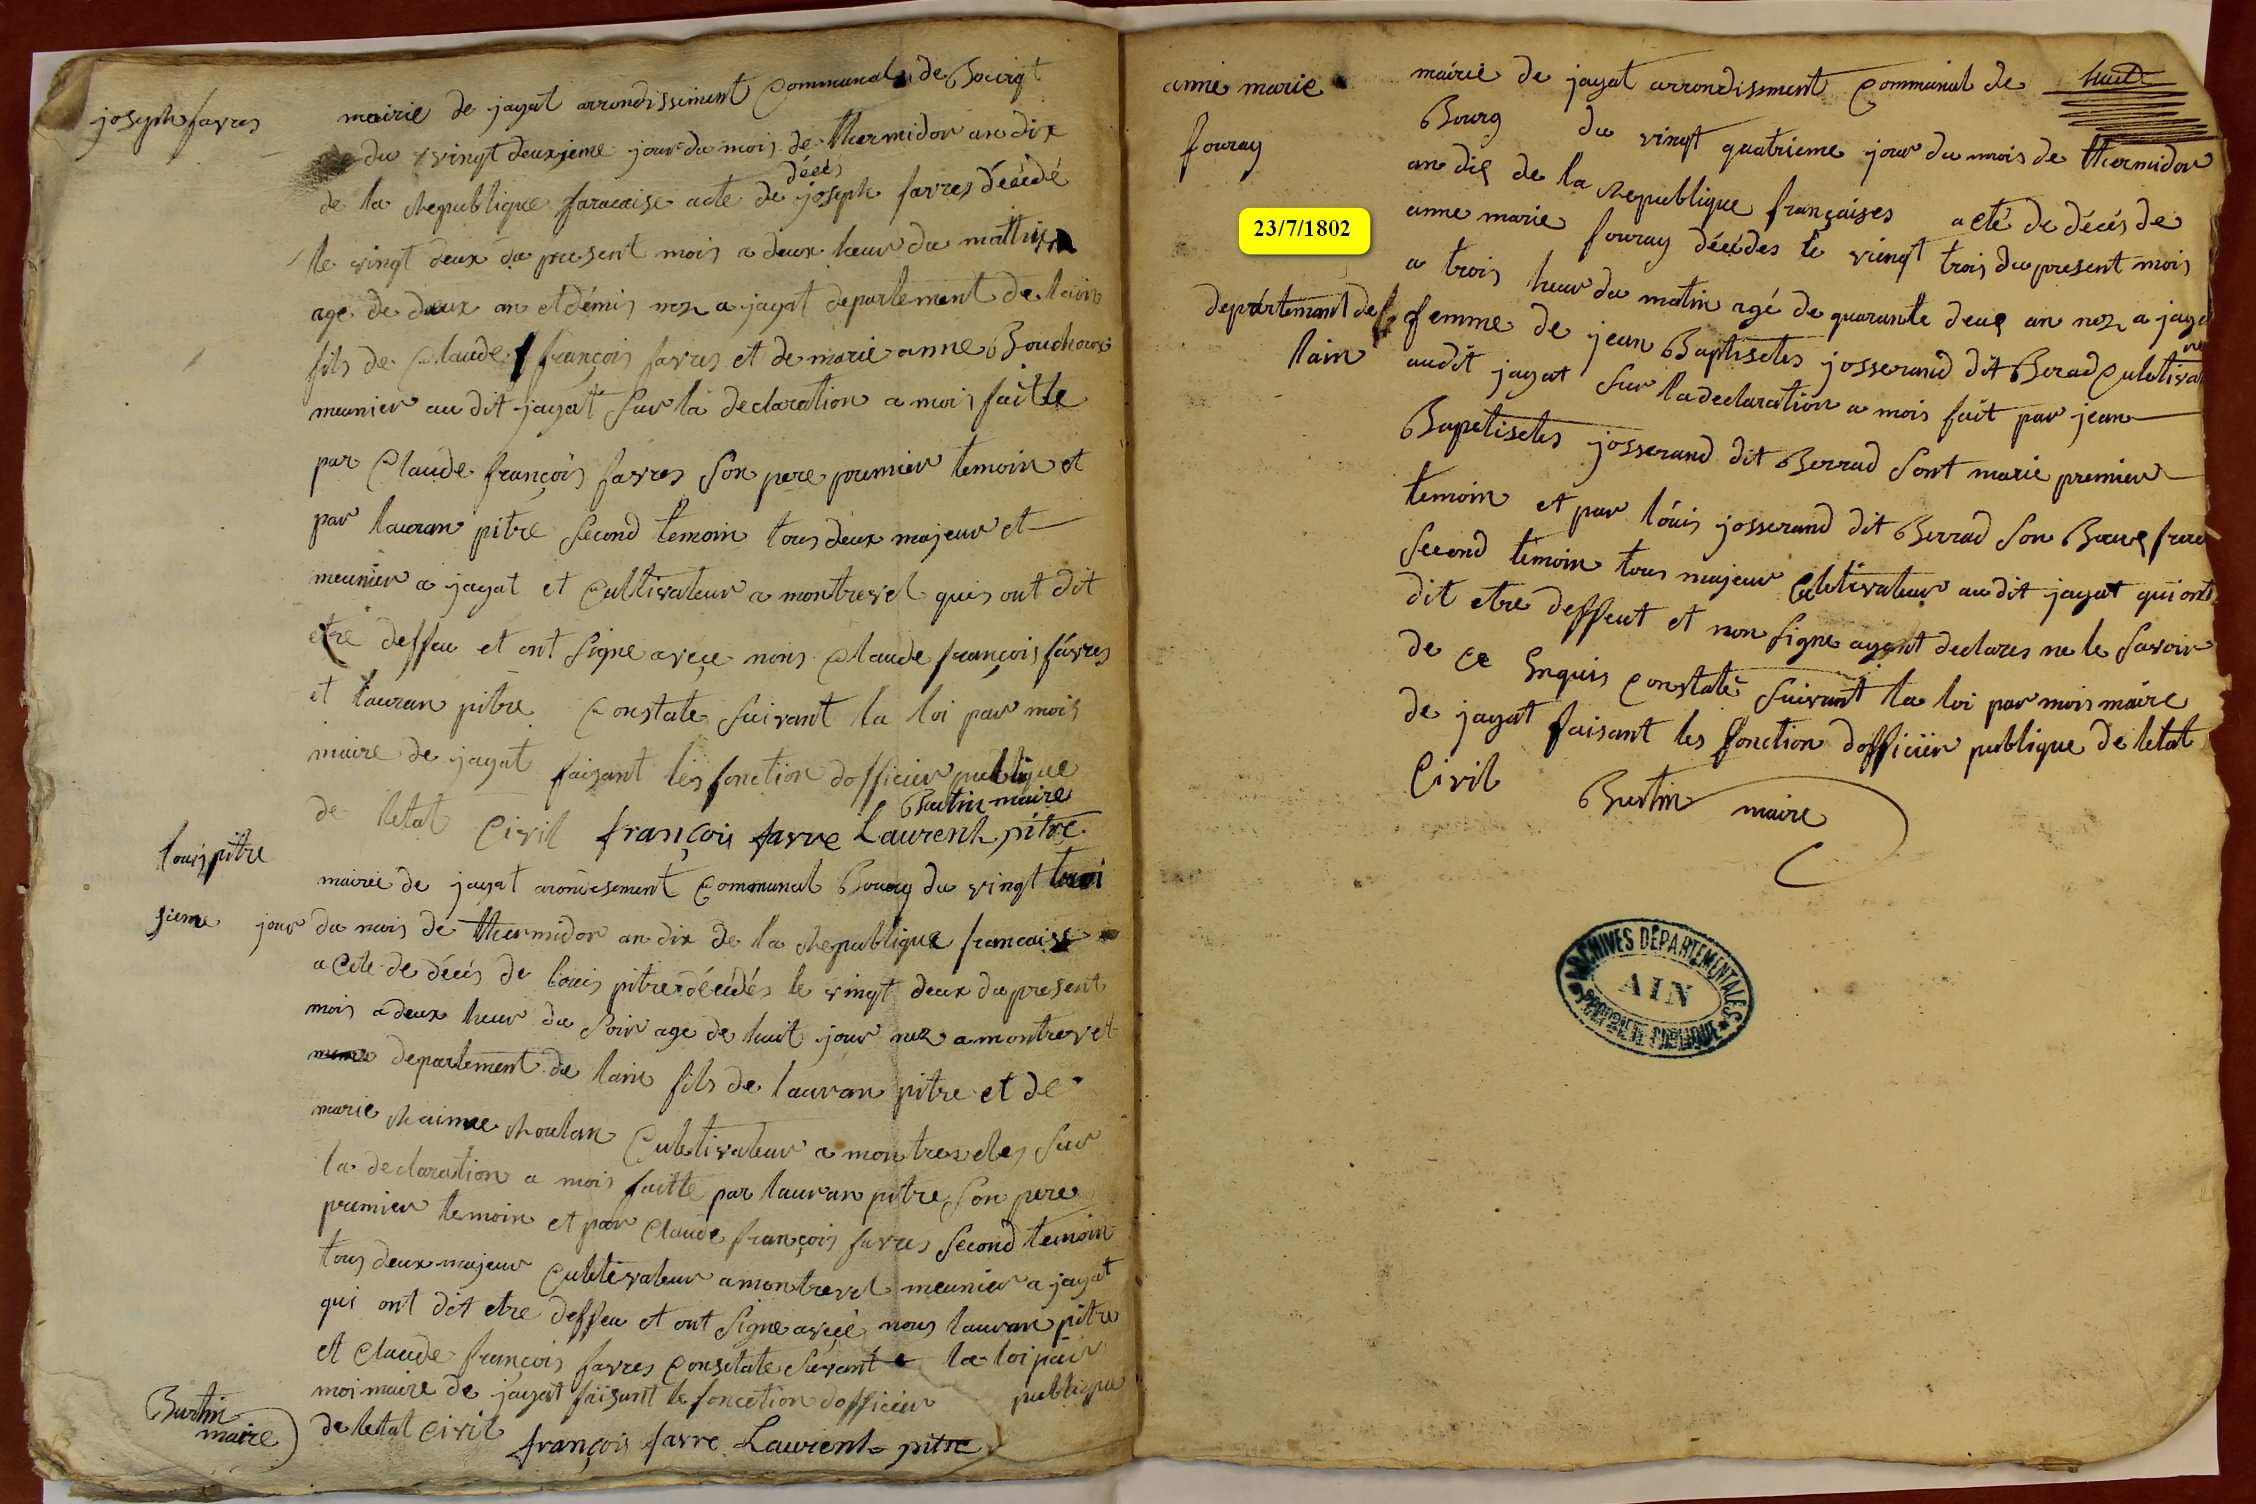 joseph favres
mairie de jayat arrondissement Communal de Bourgt
du vingt deuxjeme jour du mois de thermidor an dix
décés
de la Republique faracaise acte de joseph favres décédé
le vingt deux du present mois a deux heur du mattin
age de deux an et démis nez a jayat departement de lain
fils de Claude françois favres et de marie anne Bouchoux
meunier au dit jayat Sur la declaration a mois faitte
par Claude françois favres Son pere premier temoin et
par lauran pitre Second temoin tous deux majeur et
meunier a jayat et Cultivateur a montrevel quis ont dit
etre deffeu et ont Signe avece nous Claude françois favres
et lauran pitre Constate Suivant la loi par mois
maire de jayat faisant les fonction dofficier publique
Burtin maire
de letat Civil françois favre Laurent pitre
louis pitre
mairie de jayat arondisement Communal Bourg du vingt troi
sieme jour du mois de thermidor an dix de la Republique francaise
acte de décés de louis pitre décédés le vingt deux du present
mois a deux heur du Soir age de huit jour nez a montrevel
departement de lain fils de lauran pitre et de
marie Cultivateur a Sur
la declaration a mois faitte par lauran pitre Son pere
premier temoin et par Claude françois favres Second temoin
tous deux majeur Culetivateur a montrevel meunier a jayat
qui ont dit etre deffeu et ont Signe avece nous lauran pitre
et Claude françois favres Consctate Suvant la loi par
moi maire de jayat faisant le fonction dofficier publique
de letat Civil françois favre Laurent pitre
Burtin
maire
anne marie
fouray
23/7/1802
departement de
lain
mairie de jayat arrondisment Communal de
Bourg du vingt quatrieme jour du mois de thermidor
an dix de la Republique françaises acté de décés de
anne marie fouray décédes le vingt trois du present mois
a trois heur du matin agé de quarante deux an nez a jayat
femme de jean Baptisctes josserand dit Berad Culetivateur
audit jayat Sur la declaration a mois fait par jean
Bapetisctes josserand dit Berrad Sont marie premier
temoin et par louis josserand dit Berrad Son Baux frere
Second temoin tous majeur Culetivateur au dit jayat qui ont
dit etre deffeut et non Signe ayant declares ne le Savoir
de Ce Enquis Constaté Suivant la loi par mois maire
de jayat faisant les fonction dofficiier publique de letat
Civil Burtin maire
ARCHIVES DÉPARTEMENTALES
AIN
PROPRIÉTÉ PUBLIQUE